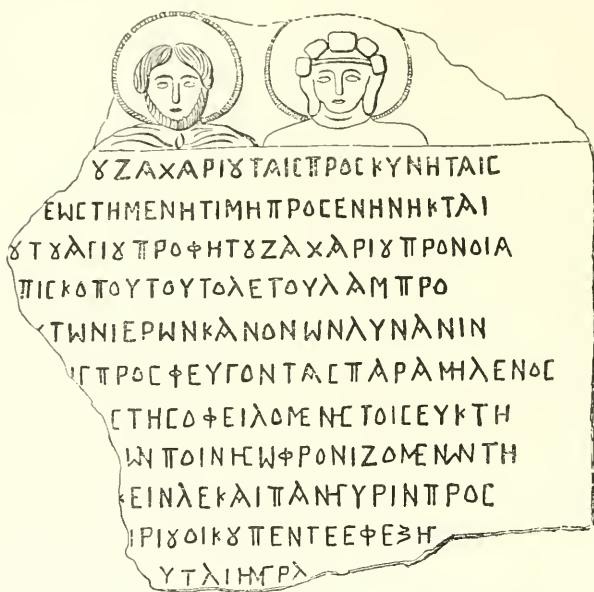 ȢΖΑΧΑΡΙȢΤΑΙϹΠΡΟϹΚΥΝΗΤΑΙϹ
ΕΩϹΤΗΜΕΝΗΤΙΜΗΠΡΟϹΕΝΗΝΗΚΤΑΙ
ȢΤȢΑΓΙȢΠΡΟΦΗΤȢΖΑΧΑΡΙȢΠΡΟΝΟΙΑ
ΠΙϹΚΟΠΟΥΤΟΥΤΟΛΕΤΟΥΛΑΜΠΡΟ
ȢΤΩΝΙΕΡΩΝΚΑΝΟΝΩΝΛΥΝΑΝΙΝ
ΙϹΠΡΟϹΦΕΥΓΟΝΤΑϹΠΑΡΑΜΗΛΕΝΟϹ
ϹΤΗϹΟΦΕΙΛΟΜΕΝΗϹΤΟΙϹΕΥΚΤΗ
ΩΝΠΟΙΝΗϹΩΦΡΟΝΙΖΟΜΕΝΩΝΤΗ
ΚΕΙΝΛΕΚΑΙΠΑΝΗΓΥΡΙΝΠΡΟϹ
ΙΡΙȢΟΙΚȢΠΕΝΤΕΕΦΕΞΗ
ΥΤΑΙΗΜΓΡΑ